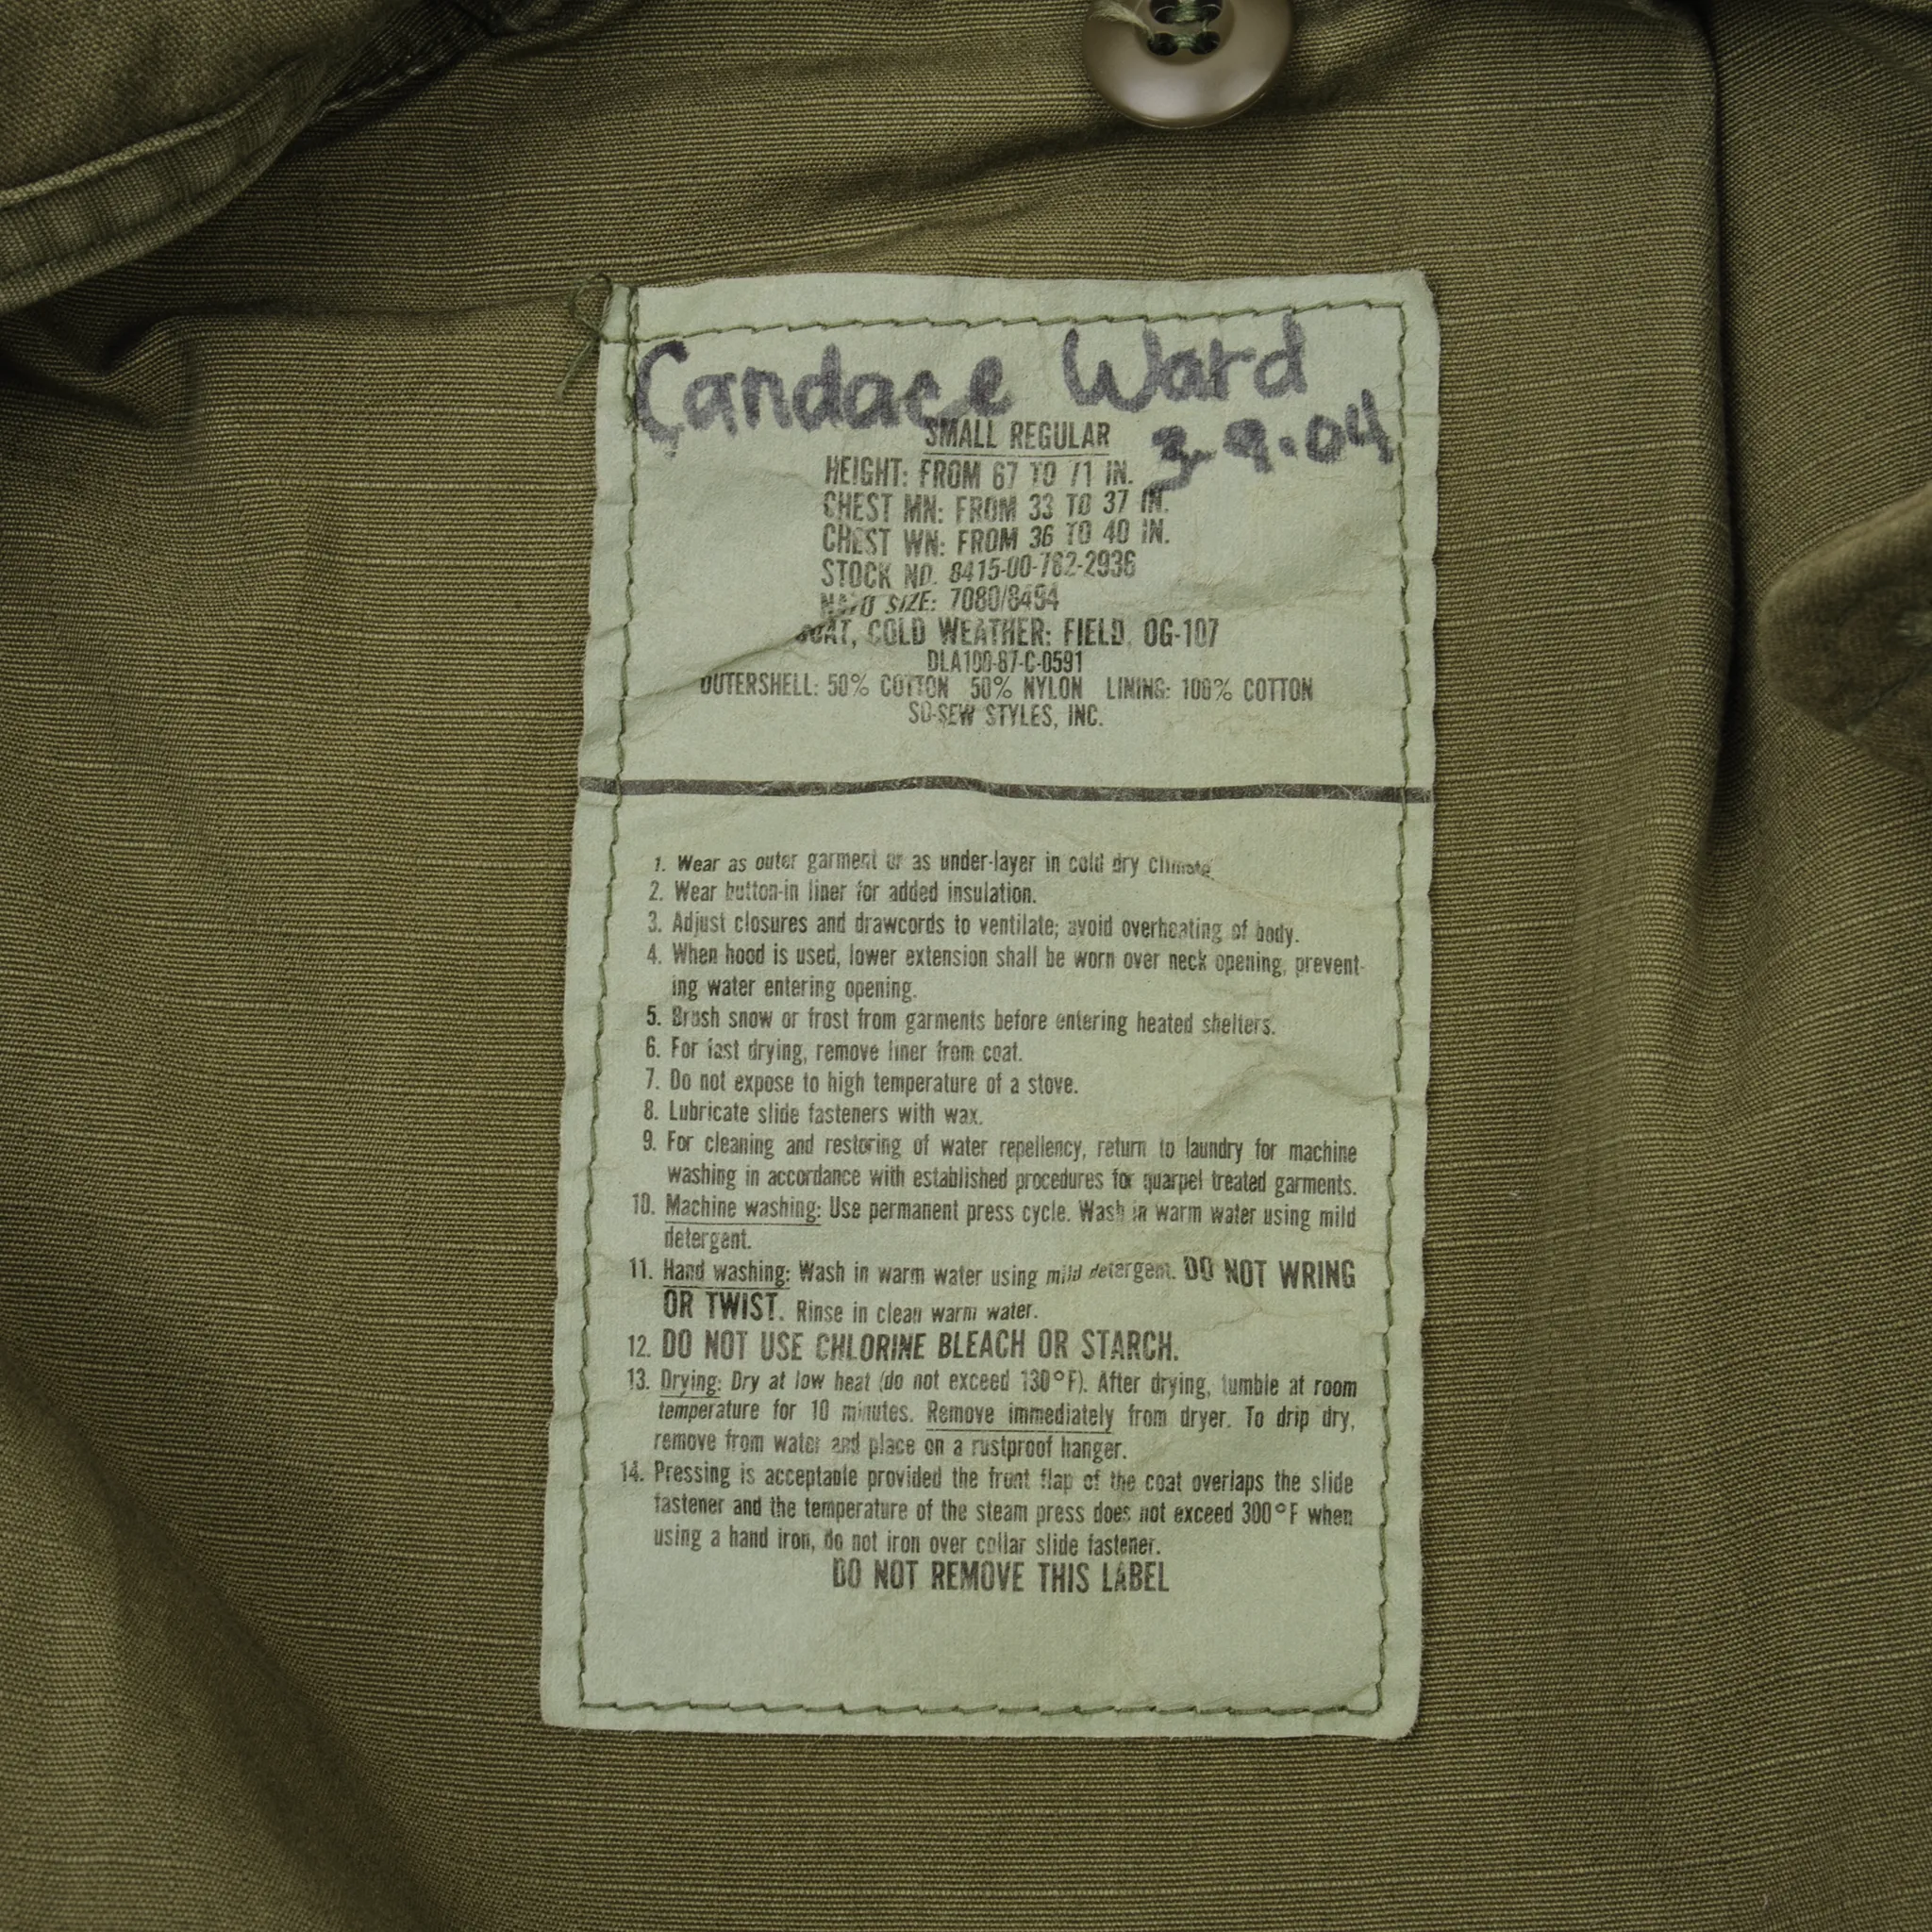 Candace Ward
3-9-04
SMALL REGULAR
HEIGHT: FROM 67 TO 71 IN.
CHEST MN: FROM 33 TO 37 IN.
CHEST WN: FROM 36 TO 40 IN.
STOCK NO. 8415-00-782-2936
NATO SIZE: 7080/8494
COAT, COLD WEATHER: FIELD, OG-107
DLA100-87-C-0591
OUTERSHELL: 50% COTTON 50% NYLON LINING: 100% COTTON
SO-SEW STYLES, INC.
1. Wear as outer garment or as under-layer in cold dry climate
2. Wear button-in liner for added insulation.
3. Adjust closures and drawcords to ventilate; avoid overheating of body.
4. When hood is used, lower extension shall be worn over neck opening, prevent-
ing water entering opening.
5. Brush snow or frost from garments before entering heated shelters.
6. For fast drying, remove liner from coat.
7. Do not expose to high temperature of a stove.
8. Lubricate slide fasteners with wax.
9. For cleaning and restoring of water repellency, return to laundry for machine
washing in accordance with established procedures for quarpel treated garments.
10. Machine washing: Use permanent press cycle. Wash in warm water using mild
detergent.
11. Hand washing: Wash in warm water using mild detergent. DO NOT WRING
OR TWIST. Rinse in clean warm water.
12. DO NOT USE CHLORINE BLEACH OR STARCH.
13. Drying: Dry at low heat (do not exceed 130°F). After drying, tumble at room
temperature for 10 minutes. Remove immediately from dryer. To drip dry,
remove from water and place on a rustproof hanger.
14. Pressing is acceptable provided the front flap of the coat overlaps the slide
fastener and the temperature of the steam press does not exceed 300°F when
using a hand iron, do not iron over collar slide fastener.
DO NOT REMOVE THIS LABEL